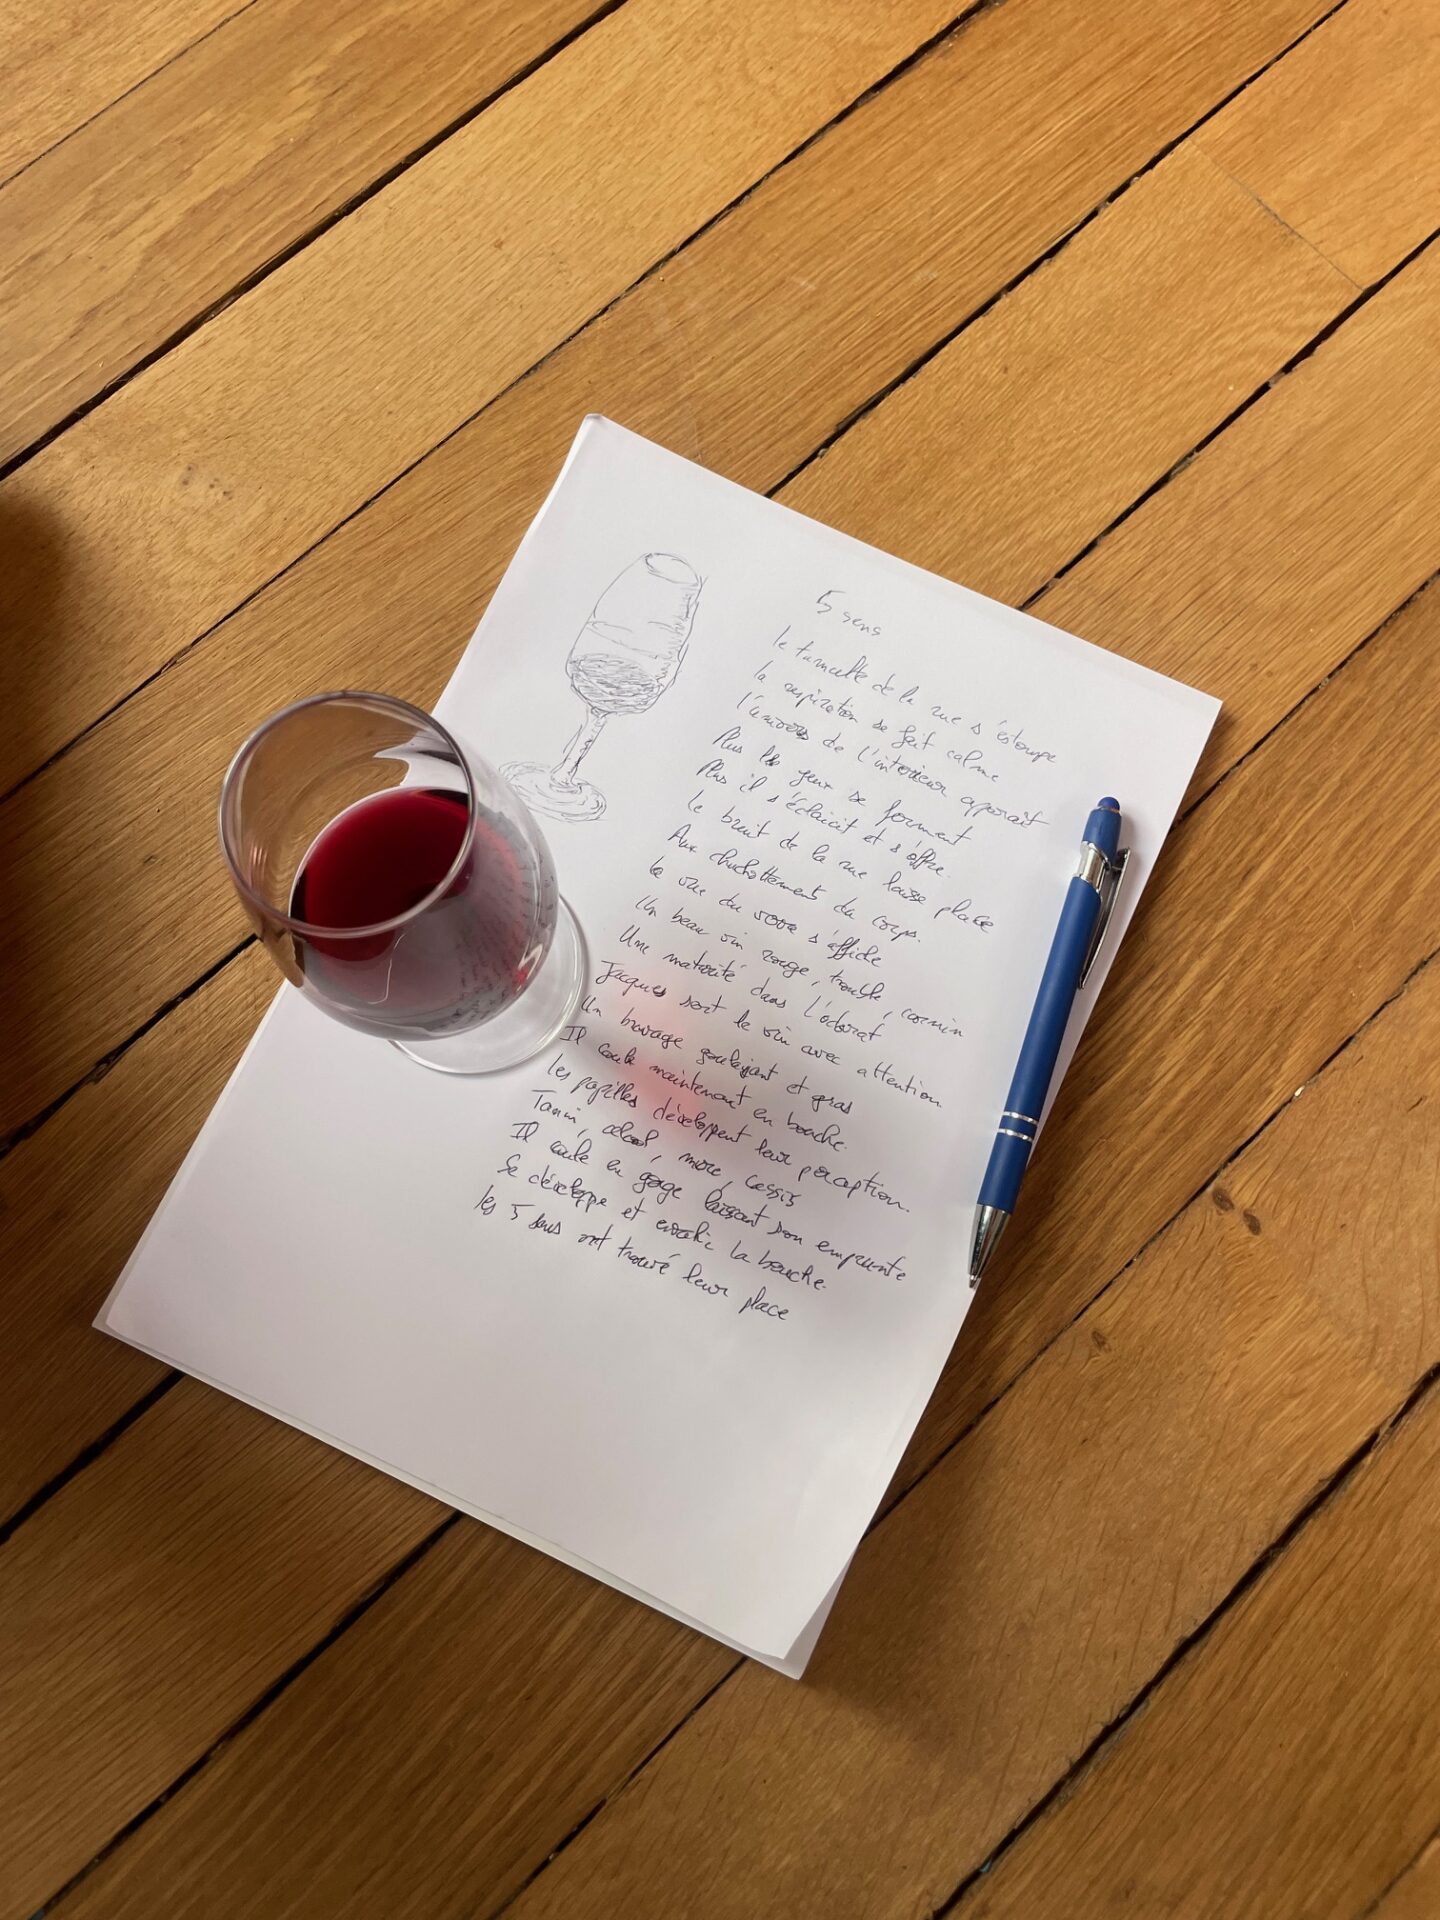 5 sens
le tumulte de la rue s'estompe
la respiration se fait calme
l'univers de l'intérieur apparait
Plus les yeux se ferment
Plus il s'éclaicit et s'offre.
Le bruit de la rue laisse place
Aux chuchottements du corps.
la vue du verre s'affiche
Un beau vin rouge, trouble, carmin
Une maturité dans l'odorat
Jacques sert le vin avec attention
Un breuvage gouleyant et gras
Il coule maintenant en bouche.
les papilles développent leur perception.
Tanin, alcool, mûre, cassis
Il coule en gorge laissant son emprunte
Se développe et envahie la bouche.
les 5 sens ont trouvé leur place